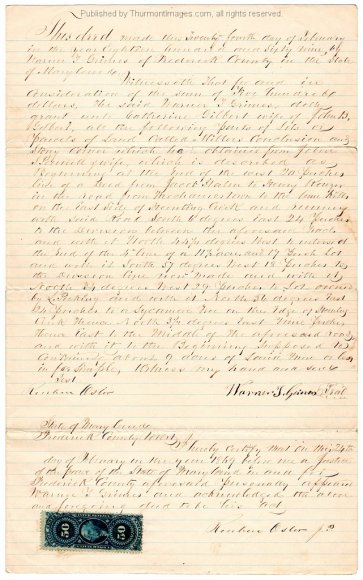 Published by ThurmontImages.com, all rights reserved
This deed made this Twenty fourth day of February
in the year Eighteen hundred and sixty nine, by
Warner T. Grimes of Frederick County in the State
of Maryland
Witnesseth That for and in
consideration of the sum of Five hundred
dollars, The said Warner T Grimes, doth
grant unto Catherine Gilbert wife of John B.
Gilbert, all the following parts of Lots or
Parcels of Land Called Millers Conclusion and
Stony which he obtained from
wife which is described as
Beginning at the end of the west 20 perches
line of a Deed from Jacob to Henry
in the road from Mechanicstown to the Lime Kiln
on the East side of Hunting Creek and runing
with said Road South 6 degrees East 24 perches
to the Division between the aforesaid
and with it North 44½ degrees West to intersect
the end of the 4th line of a
and with it South 37 degrees West 12 perches to
the Division line now made and with it
North 54 degrees West 29 perches to Lot owned
by and with it North 36 degrees East
24 perches to a Sycamore Tree on the Edge of Hunting
Creek Thence North 3½ degrees East Nine perches
thence East to the Middle of the aforesaid road
and with it to the Beginning Supposed to
Containing about 9 Acres of Land More or less
in fee Simple, Witness my hand and seal
Test
Reuben Osler Warner T. Grimes Seal
State of Maryland
Frederick County to wit
I hereby Certify that on this 24th
day of in the year 1869 before me a Justice
of the peace of the State of Maryland in and for
Frederick County aforesaid personally appeared
Warner T Grimes and acknowledged the above
and foregoing deed to be his act
Reuben Osler J.P.
50 50